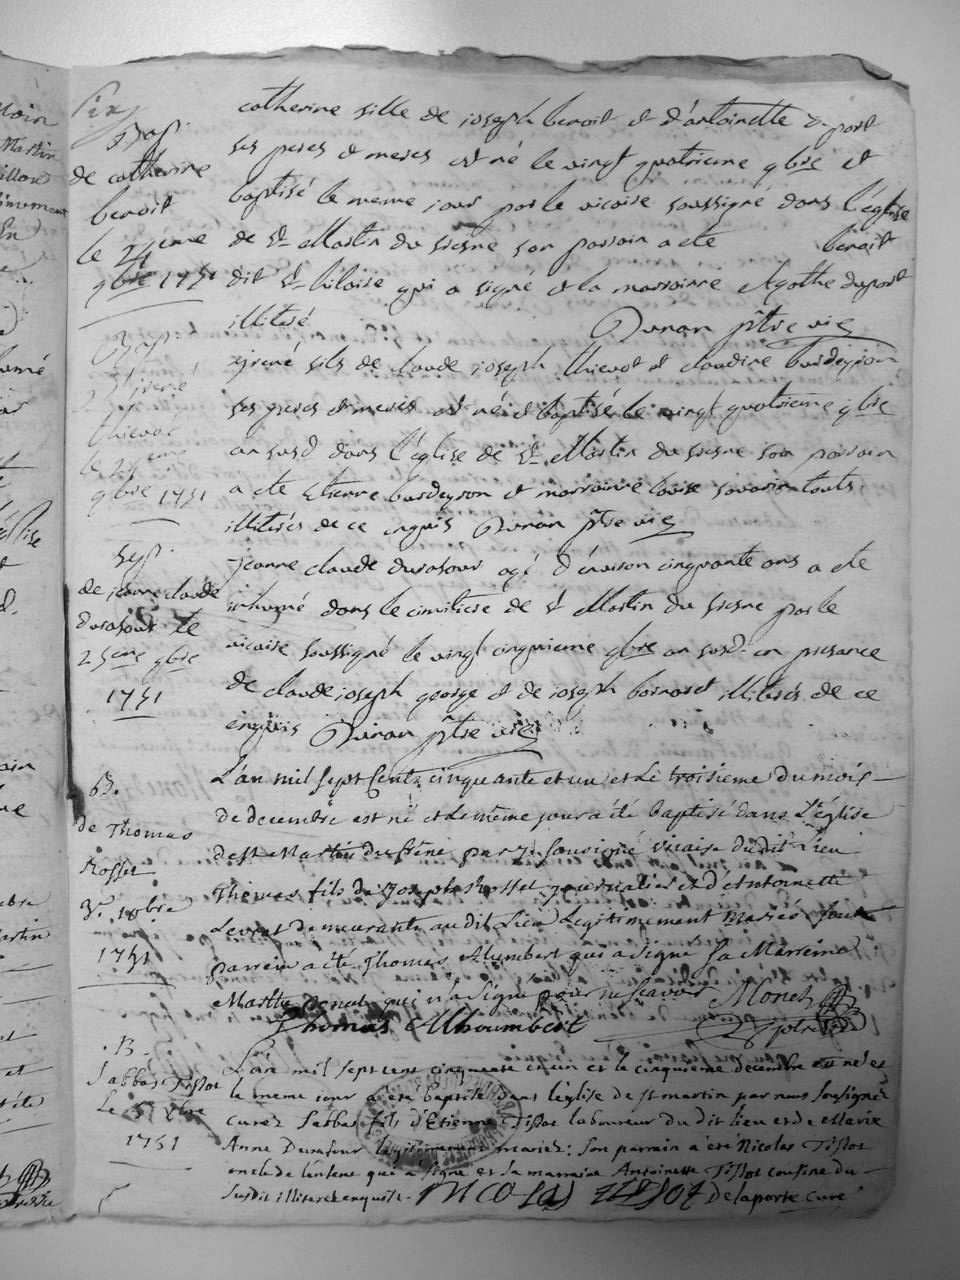 Six
Bap.
de catherine
benoit
le 24eme
9bre 1751
catherine fille de joseph benoit et d'antoinette duport
ses peres et meres est né le vingt quatrieme 9bre et
baptisé le meme jour par le vicaire soussigné dans l'église
de St Martin du fresne son parrain a ete benoit
dit St hilaire qui a signe et la marrainne Agathe duport
illiteré Duran ptre vic
Bap.
thievot
le 24eme
9bre 1751
fils de claude joseph thievot et claudine bardeyron
ses peres et meres est né et baptisé le vingt quatrieme 9bre
an susd dans l'église de St Martin du fresne son parrain
a ete Etienne bardeyron et marrainne louise savarin touts
illiterés de ce enquis Duran ptre vic
Sep.
de jeanne claude
durafour le
25eme 9bre
1751
jeanne claude durafour agé d'environ cinquante ans a ete
inhumé dans le cimitiere de St Martin du fresne par le
vicaire soussigné le vingt cinquieme 9bre an susd. en presance
de claude joseph george et de joseph illiterés de ce
enquis Duran ptre vic
B.
de Thomas
Rosset
3e. 10bre
1751
L'an mil sept Centz cinquante et un et Le troisieme du mois
de decembre est né et le même jour a été baptisé dans L'église
de St Martin du frêne par je soussigné vicaire du dit Lieu
Thomas fils de Joseph Rosset journalier et d'Antoinette
Levrat demeurants au dit Lieu Legitimement mariés son
parrein a été Thomas Alumbert qui a signé sa Marreine
Marthe qui n'a signé pour ne scavoir Monet
Thomas Alhoumbert ptre
B.
Sabbas Tissot
Le 5e Xbre
1751
L'an mil sept cent cinquante et un et le cinquieme decembre est né et
le meme jour a été baptisé dans leglise de st martin par nous soussigné
curez Sabbas fils d'Etienne Tissot laboureur du dit lieu et de Marie
Anne Durafour legitimement mariez: son parrain a été Nicolas Tissot
oncle de lenfent qui a signe et sa marraine Antoinette Tissot cousine du
susdit illiteré enquise. NICOLAS TISSOT Delaporte curé